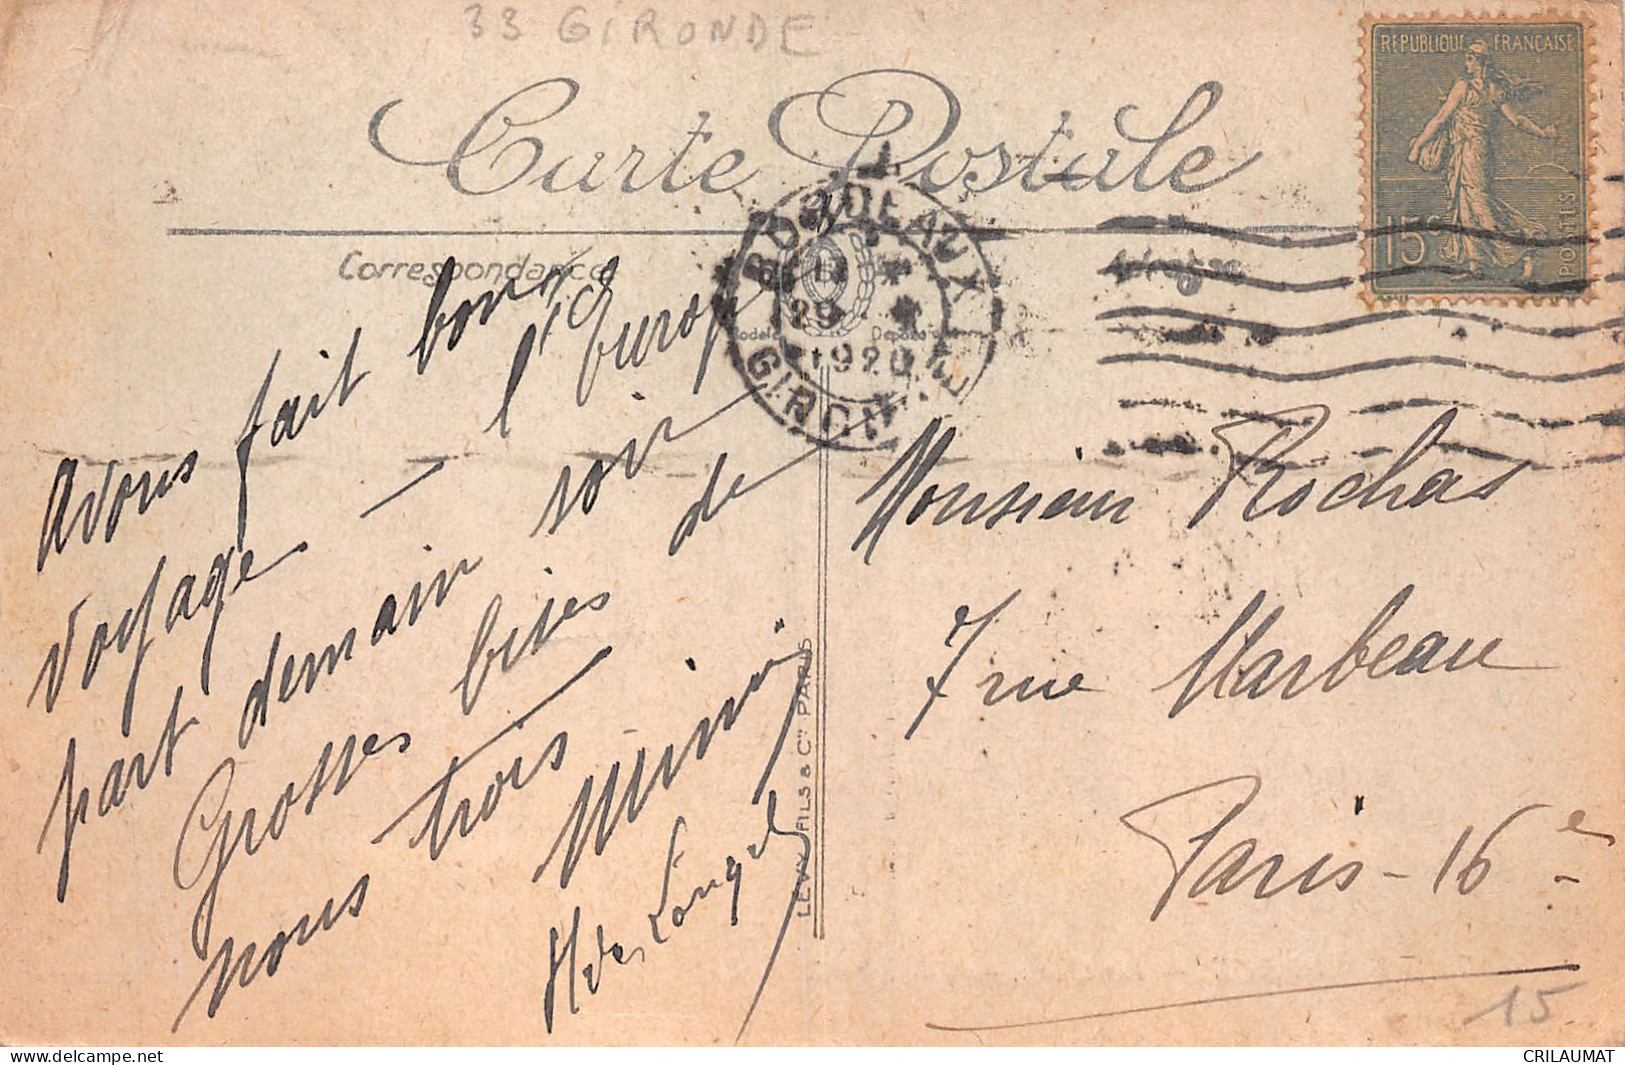 33 GIRONDE
Carte Postale
REPUBLIQUE FRANÇAISE
15c
POSTES
Correspondance
BORDEAUX
29
1920
GIRONDE
Avons fait bon
voyage — l'"Europe
part demain soir
Grosses bises de
nous trois
H de
Monsieur Rochas
7 rue Marbeau
Paris - 16e
LEVY FILS & Cie PARIS
15
CRILAUMAT